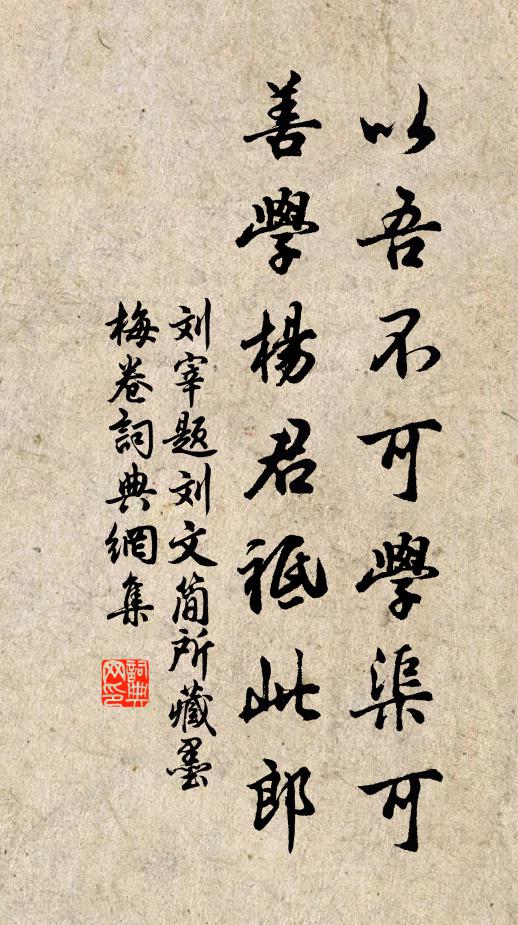 以吾不可學渠可
善學楊君祗此郎
刘宰题刘文简所藏墨
梅卷詞典網集
詞典网印